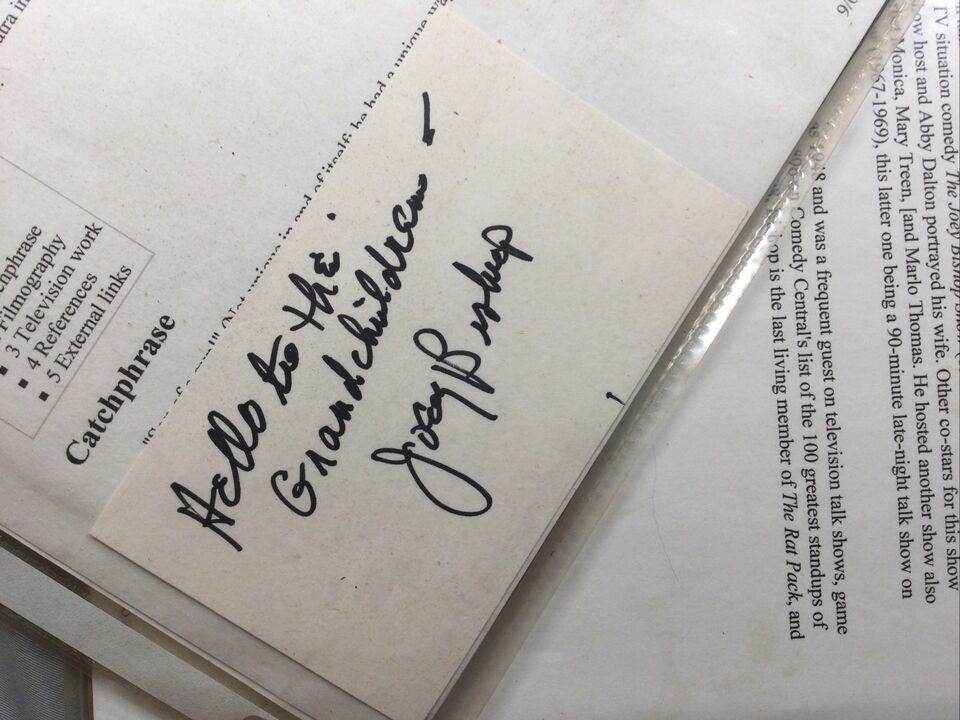 Hello to the
Grandchildren –
Joey Bishop
Filmography
3 Television work
4 References
5 External links
Catchphrase
in and of itself; he had a unique
9/6
TV situation comedy The Joey Bishop
host and Abby Dalton portrayed his wife. Other co-stars for this show
Monica, Mary Treen, [and Marlo Thomas. He hosted another show also
1967-1969), this latter one being a 90-minute late-night talk show on
and was a frequent guest on television talk shows, game
Comedy Central's list of the 100 greatest standups of
is the last living member of The Rat Pack, and